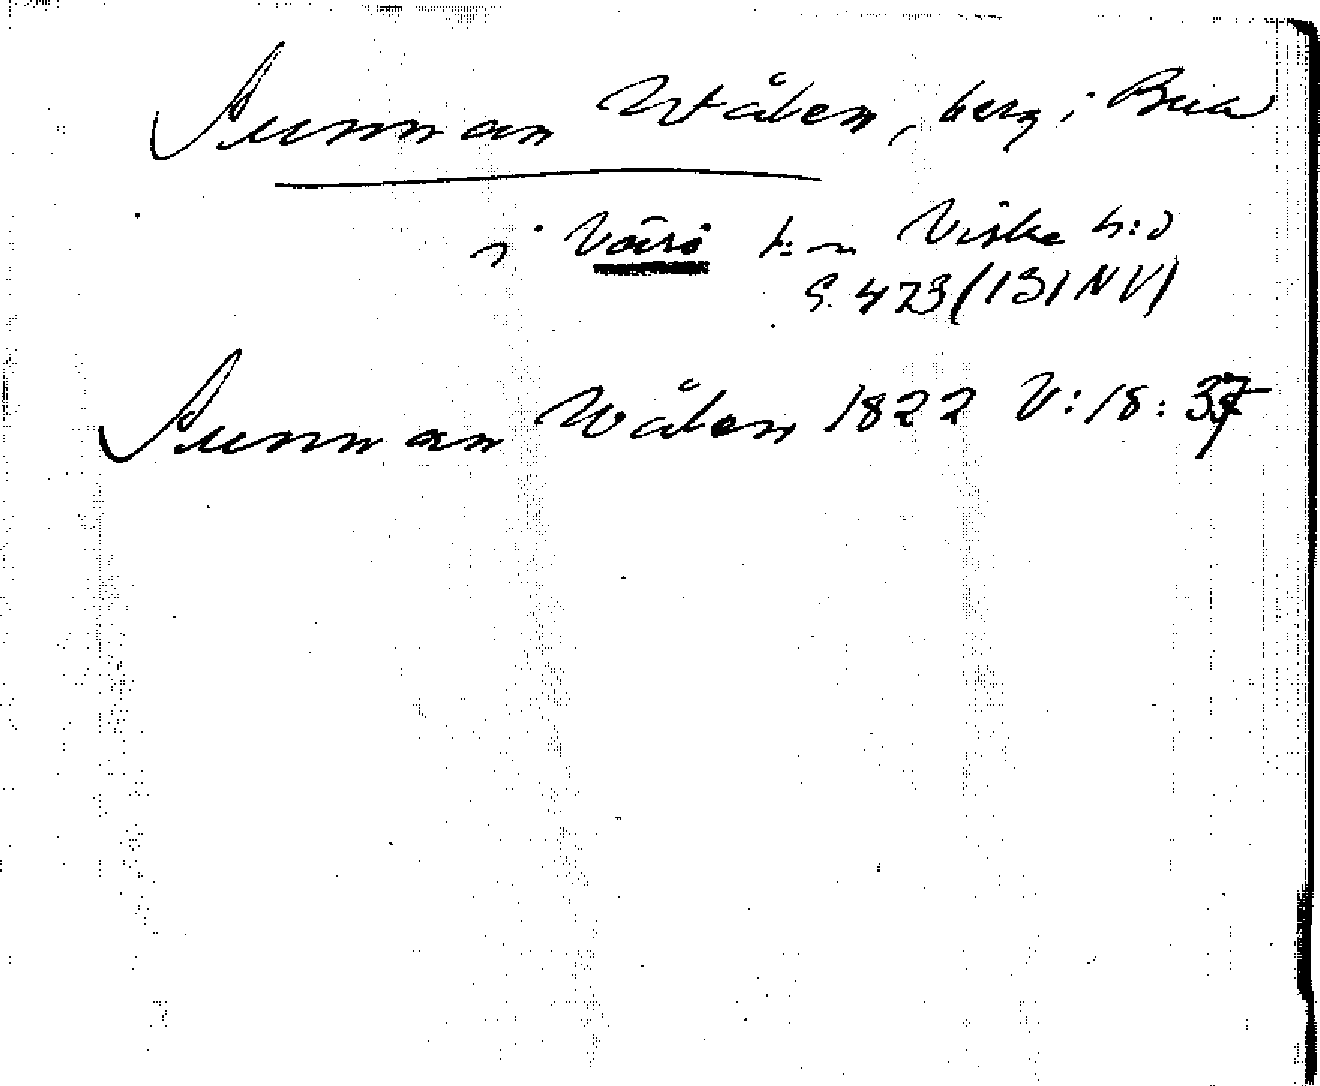 Sunnan Wålen, berg i Bua
i Värö s:n Viske h:d
S. 423 (131 NV)
Sunnan Wålen 1822 V:18:37